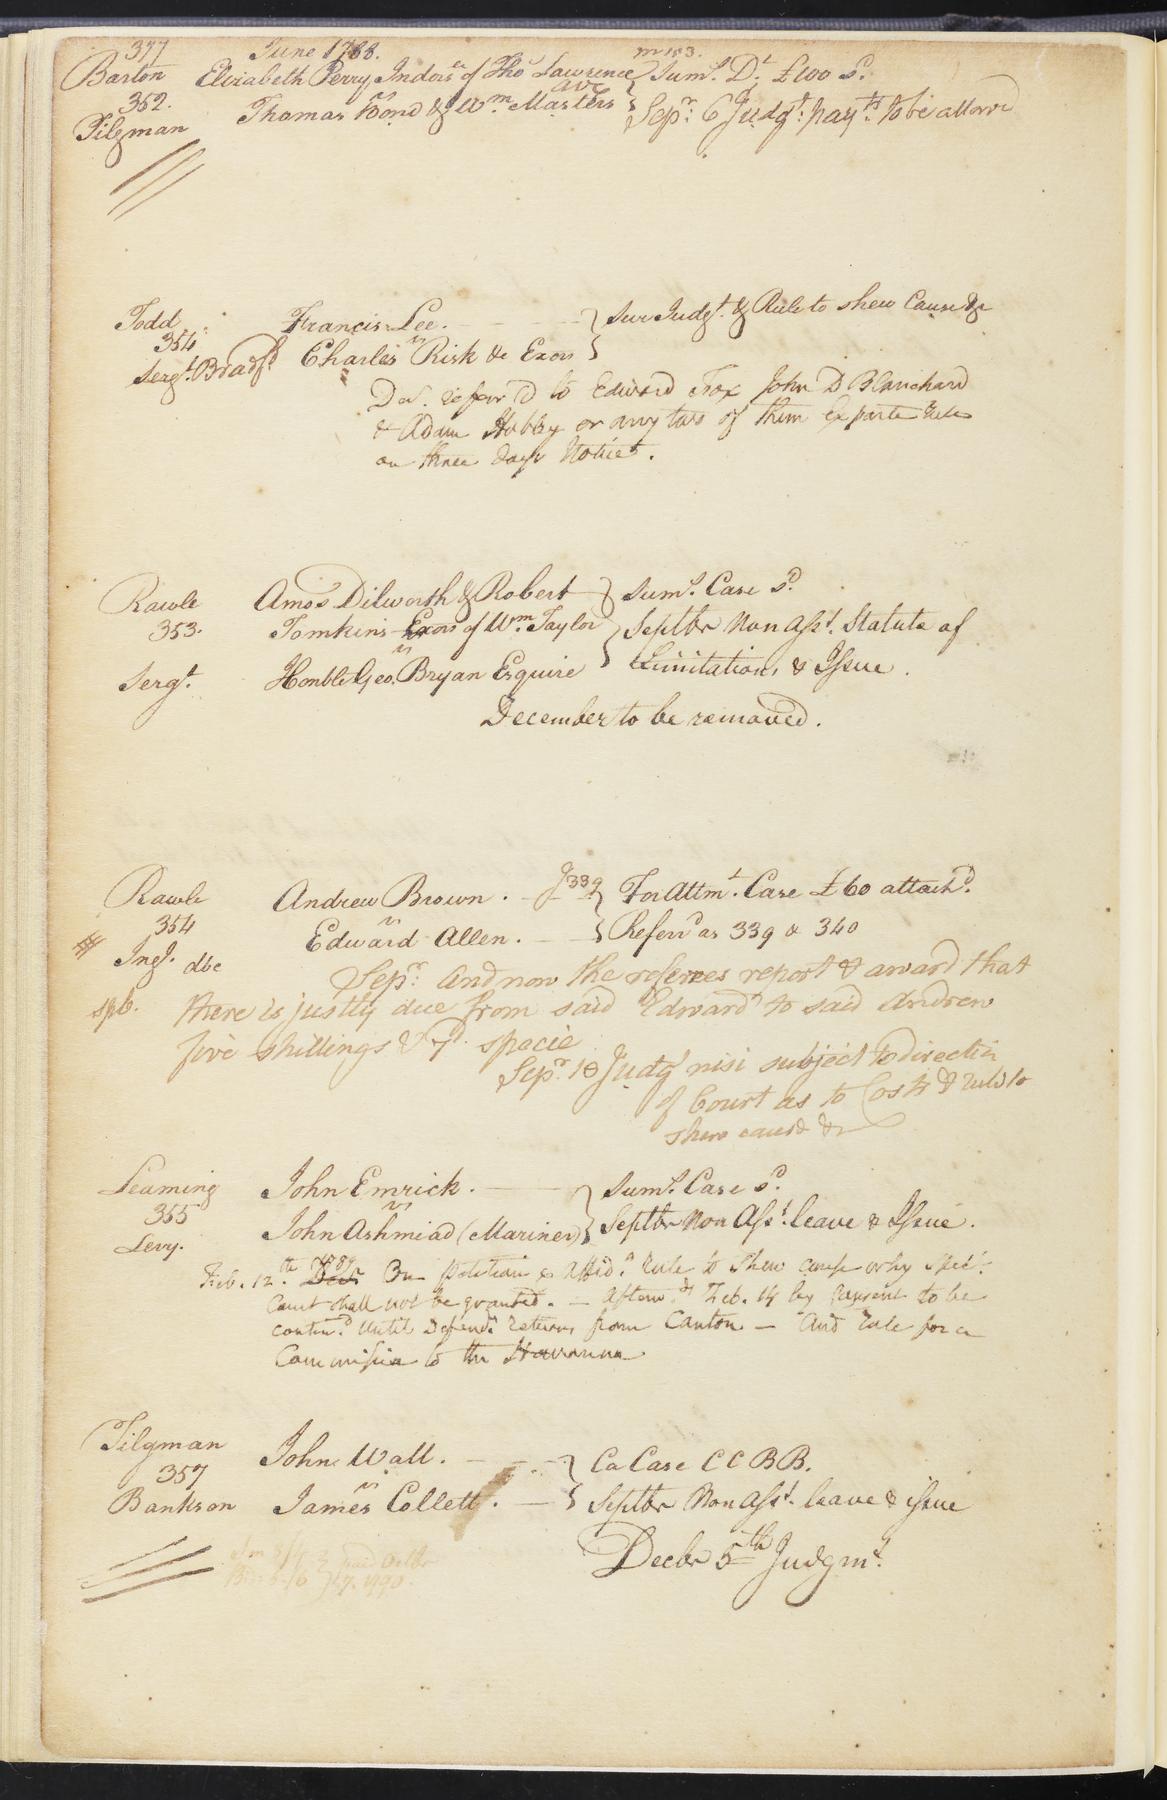 377 June 1788. m 153.
Barton Elizabeth Perry Indors.ee of Tho.s Lawrence } Sum.s D.t £100 S.d
352. Thomas Bond & W.m Masters } Sep.r 6 Judg.t pay.ts to be allowed
Tilgman
Todd Francis Lee. } Sur Judg.t & Rule to shew Cause &c
354 vs
Serg.t Bradf.d Charles Risk &c Exors }
Do. refer'd to Edward Fox John D Blanchard
& Adam Hubley or any two of them Exparte rule
on three days Notice.
Rawle Amos Dilworth & Robert } Sum.s Case S.d
353. Tomkins Exors of W.m Taylor } Septbr Non Asst. Statute of
vs
Sergt. Honble Geo. Bryan Esquire } Limitations & Issue.
December to be removed.
Rawle Andrew Brown. J 339 } For Attm.t Case £60 attach.d
354 vs
Edward Allen. } Referr'd as 339 & 340
Ingl. dbe Sep.r And now the referees report & award that
spb. there is justly due from said Edward to said Andrew
five shillings & 7.d specie
Sep.r 10 Judg.t nisi subject to direction
of Court as to Costs & rule to
shew cause &c
Leaming John Emrick. } Sum.s Case S.d
355 vs
Levy. John Ashmead (Mariner) } Septbr Non Asst. leave & Issue.
Feb. 12.th 1789 Decr On petition & Affid.t rule to shew cause why spec.l
Court shall not be granted. — Afterw.ds Feb. 14 by consent to be
contin.d until Defend.t returns from Canton — And rule for a
Commission to the Havanna
Tilgman John Wall. } Ca Case C C B B.
357 vs
Bankson James Collett. } Septbr Non Asst. leave & issue
Decbr 5th Judgm.t